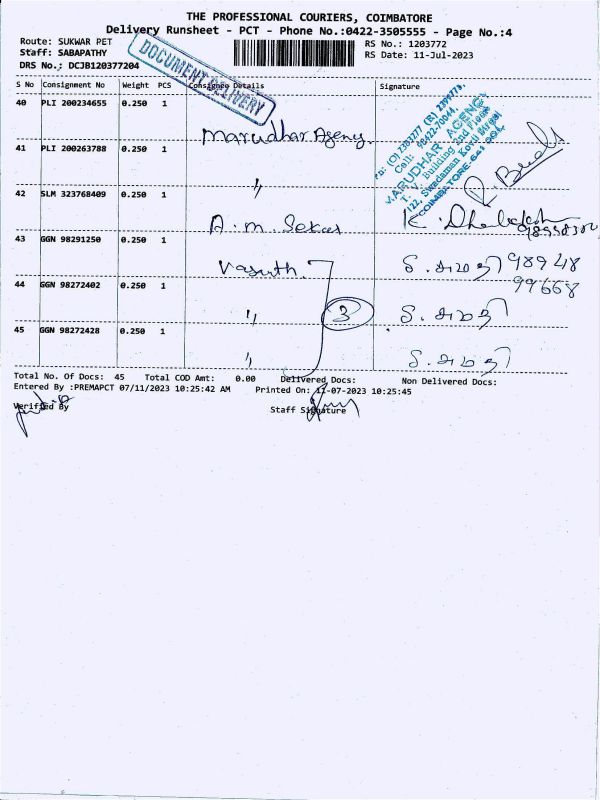 THE PROFESSIONAL COURIERS, COIMBATORE
Delivery Runsheet - PCT - Phone No.:0422-3505555 - Page No.:4
Route: SUKWAR PET
RS No.: 1203772
Staff: SABAPATHY
RS Date: 11-Jul-2023
DRS No.: DCJB120377204
DOCUMENT DELIVERY
S No Consignment No Weight PCS Consignee Details Signature
40 PLI 200234655 0.250 1
Marudhar Agency
MARUDHAR AGENCY
T. V. Building 2nd Floor
COIMBATORE-641
41 PLI 200263788 0.250 1
"
42 SLM 323768409 0.250 1
A. m. Sekar
43 GGN 98291250 0.250 1
Vasuth
98948
99668
44 GGN 98272402 0.250 1
"
3
45 GGN 98272428 0.250 1
"
Total No. Of Docs: 45 Total COD Amt: 0.00 Delivered Docs: Non Delivered Docs:
Entered By :PREMAPCT 07/11/2023 10:25:42 AM Printed On: 11-07-2023 10:25:45
Verified By
Staff Signature